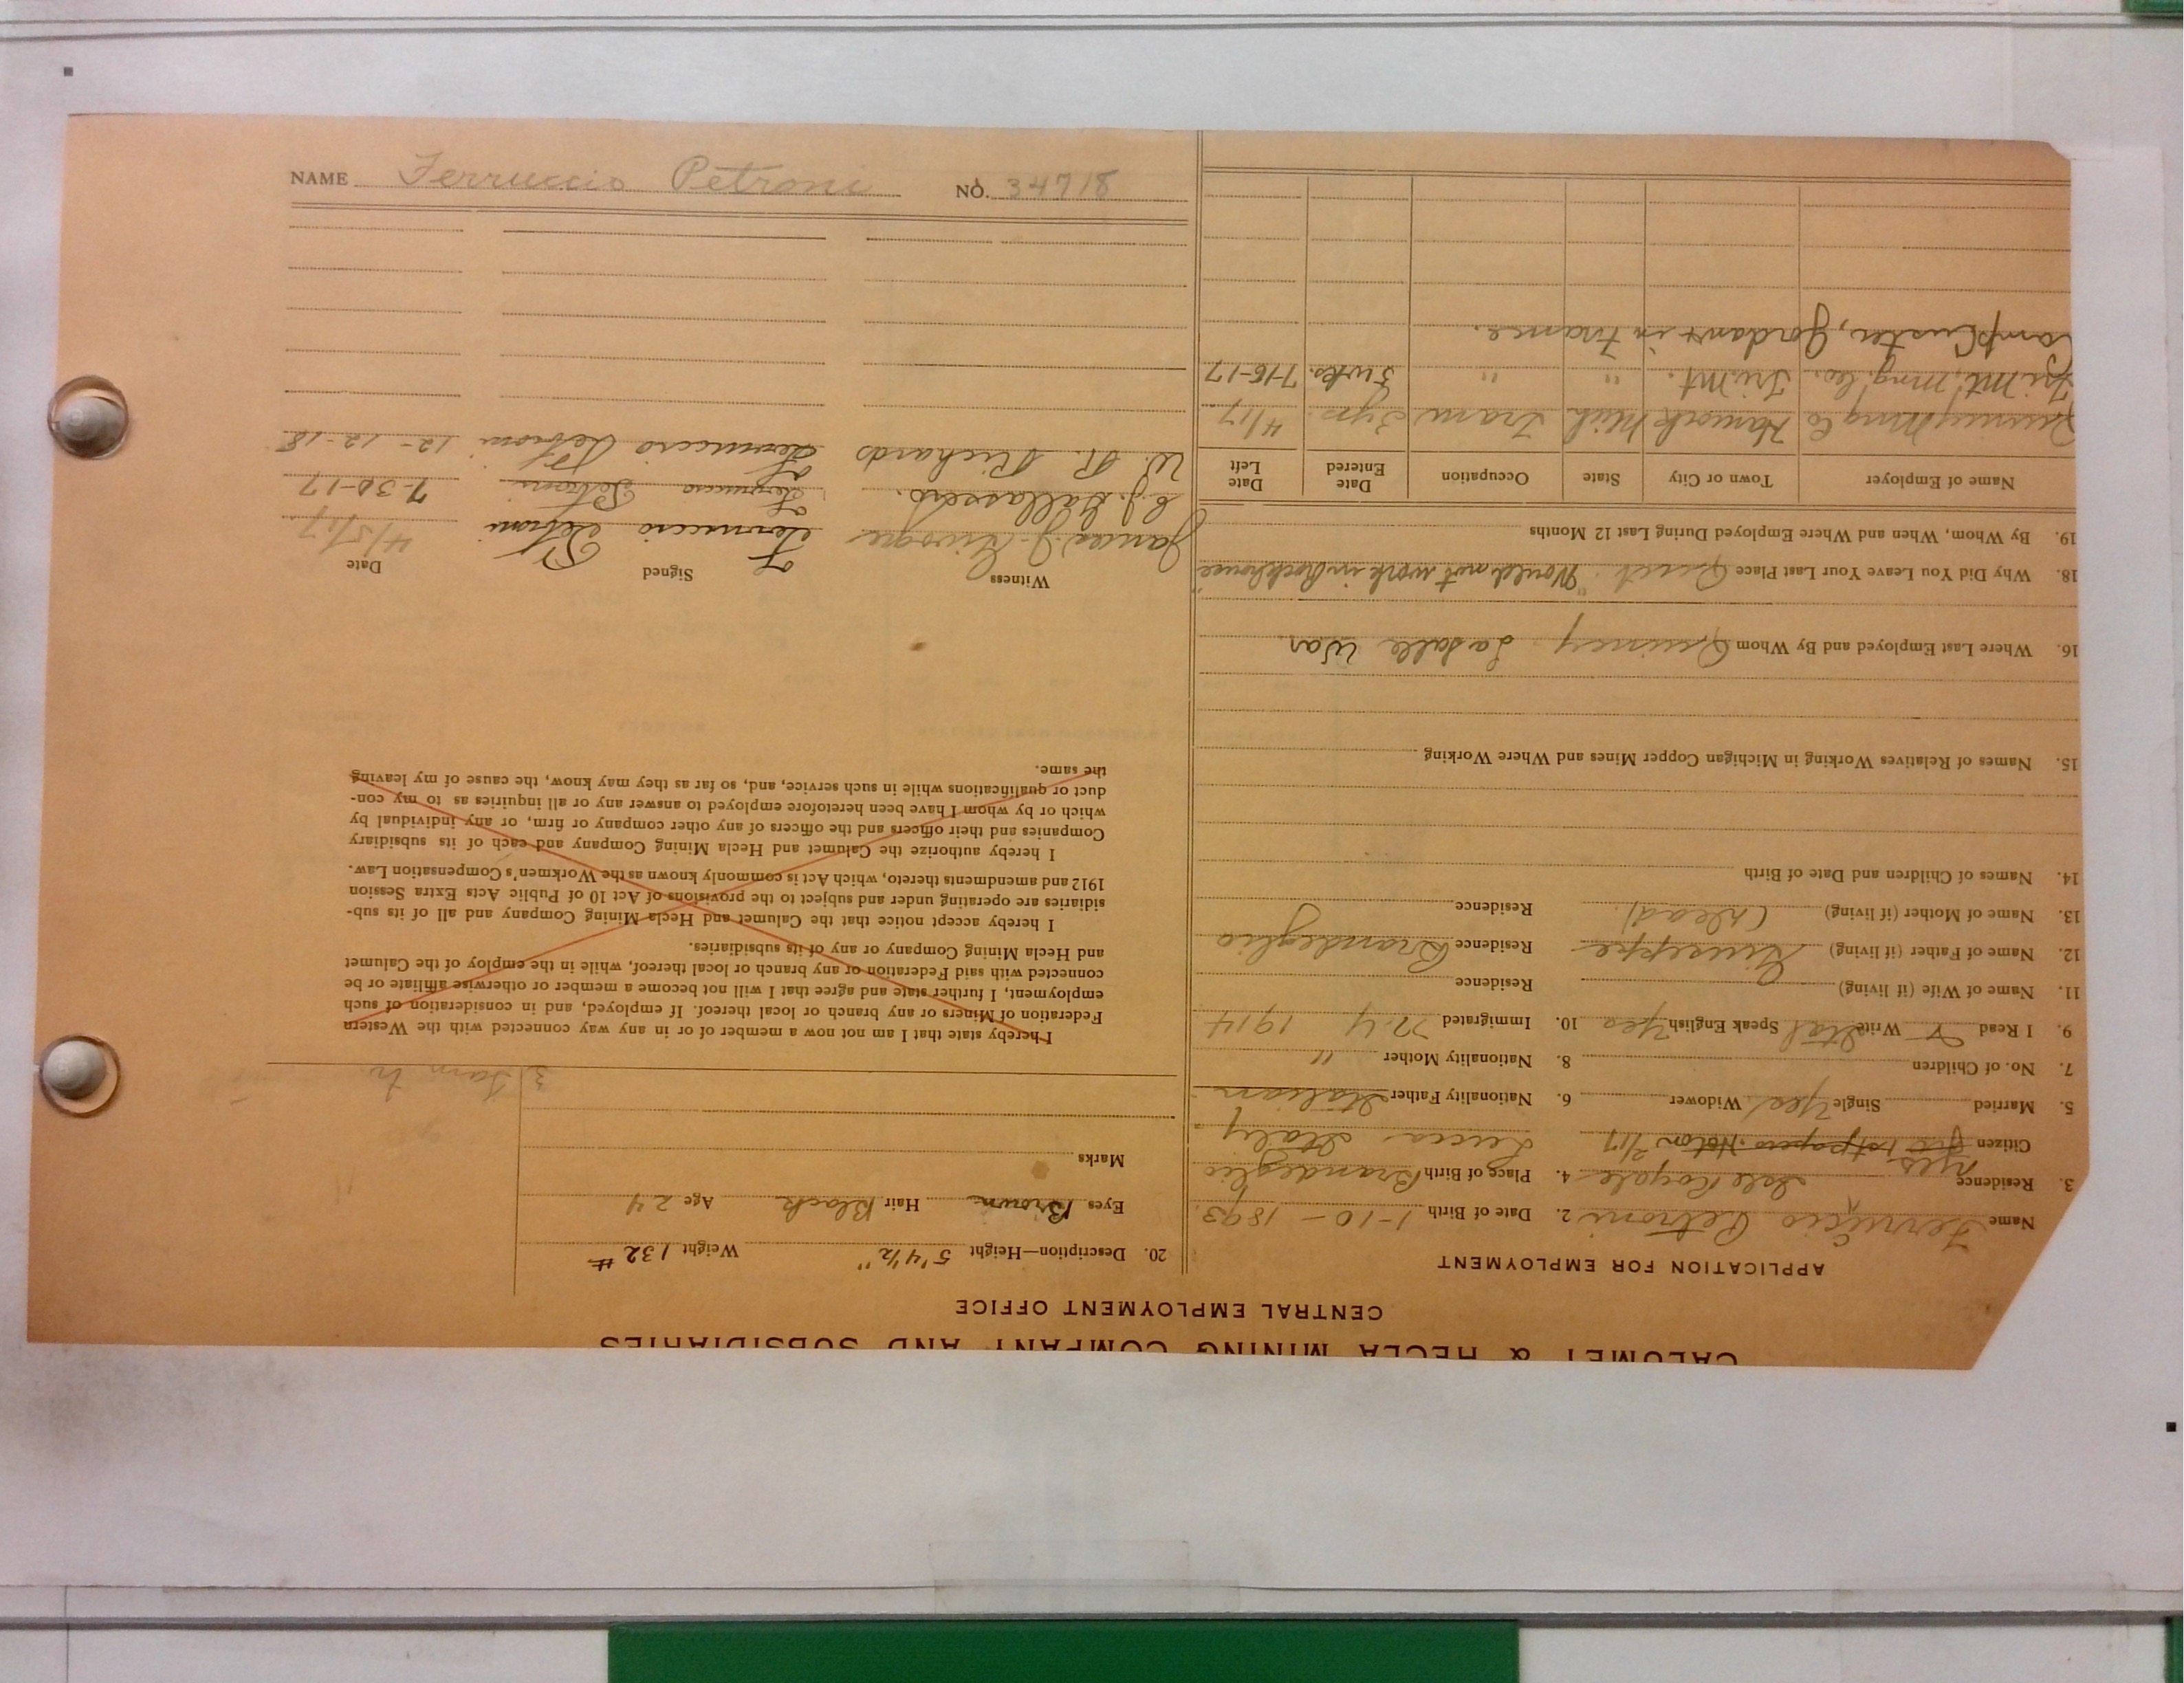 CALUMET & HECLA MINING COMPANY AND SUBSIDIARIES
CENTRAL EMPLOYMENT OFFICE
APPLICATION FOR EMPLOYMENT
Name Ferruccio Petroni 2. Date of Birth 1-10-1893
3. Residence Isle Royale 4. Place of Birth Brandeglio
Citizen yes 1st papers 2/17 Lucca Italy
5. Married Single Yes Widower 6. Nationality Father Italian
7. No. of Children 8. Nationality Mother "
9. I Read & Write Ital Speak English Yes 10. Immigrated N.Y 1914
11. Name of Wife (if living) Residence
12. Name of Father (if living) Giuseppe Residence Brandeglio
13. Name of Mother (if living) (dead) Residence
14. Names of Children and Date of Birth
15. Names of Relatives Working in Michigan Copper Mines and Where Working
16. Where Last Employed and By Whom Quincy LaSalle War
18. Why Did You Leave Your Last Place Quit "Would not work in Rockhouse"
19. By Whom, When and Where Employed During Last 12 Months
Name of Employer Town or City State Occupation Date Entered Date Left
Quincy Mng Co Hancock Mich Tram 3 yrs 4/17
Tri Mt. Mng. Co. Tri. Mt. " " 3 wks. 7-16-17
Camp Custer, in France.
20. Description—Height 5'4½" Weight 132 #
Eyes Brown Hair Black Age 24
Marks
I hereby state that I am not now a member of or in any way connected with the Western
Federation of Miners or any branch or local thereof. If employed, and in consideration of such
employment, I further state and agree that I will not become a member or otherwise affiliate or be
connected with said Federation or any branch or local thereof, while in the employ of the Calumet
and Hecla Mining Company or any of its subsidiaries.
I hereby accept notice that the Calumet and Hecla Mining Company and all of its sub-
sidiaries are operating under and subject to the provisions of Act 10 of Public Acts Extra Session
1912 and amendments thereto, which Act is commonly known as the Workmen's Compensation Law.
I hereby authorize the Calumet and Hecla Mining Company and each of its subsidiary
Companies and their officers and the officers of any other company or firm, or any individual by
which or by whom I have been heretofore employed to answer any or all inquiries as to my con-
duct or qualifications while in such service, and, so far as they may know, the cause of my leaving
the same.
Witness Signed Date
James J. Ferruccio Petroni 4/5/17
Ferruccio Petroni 7-30-17
W. R. Richards Ferruccio Petroni 12-12-18
NAME Ferruccio Petroni NO. 34718